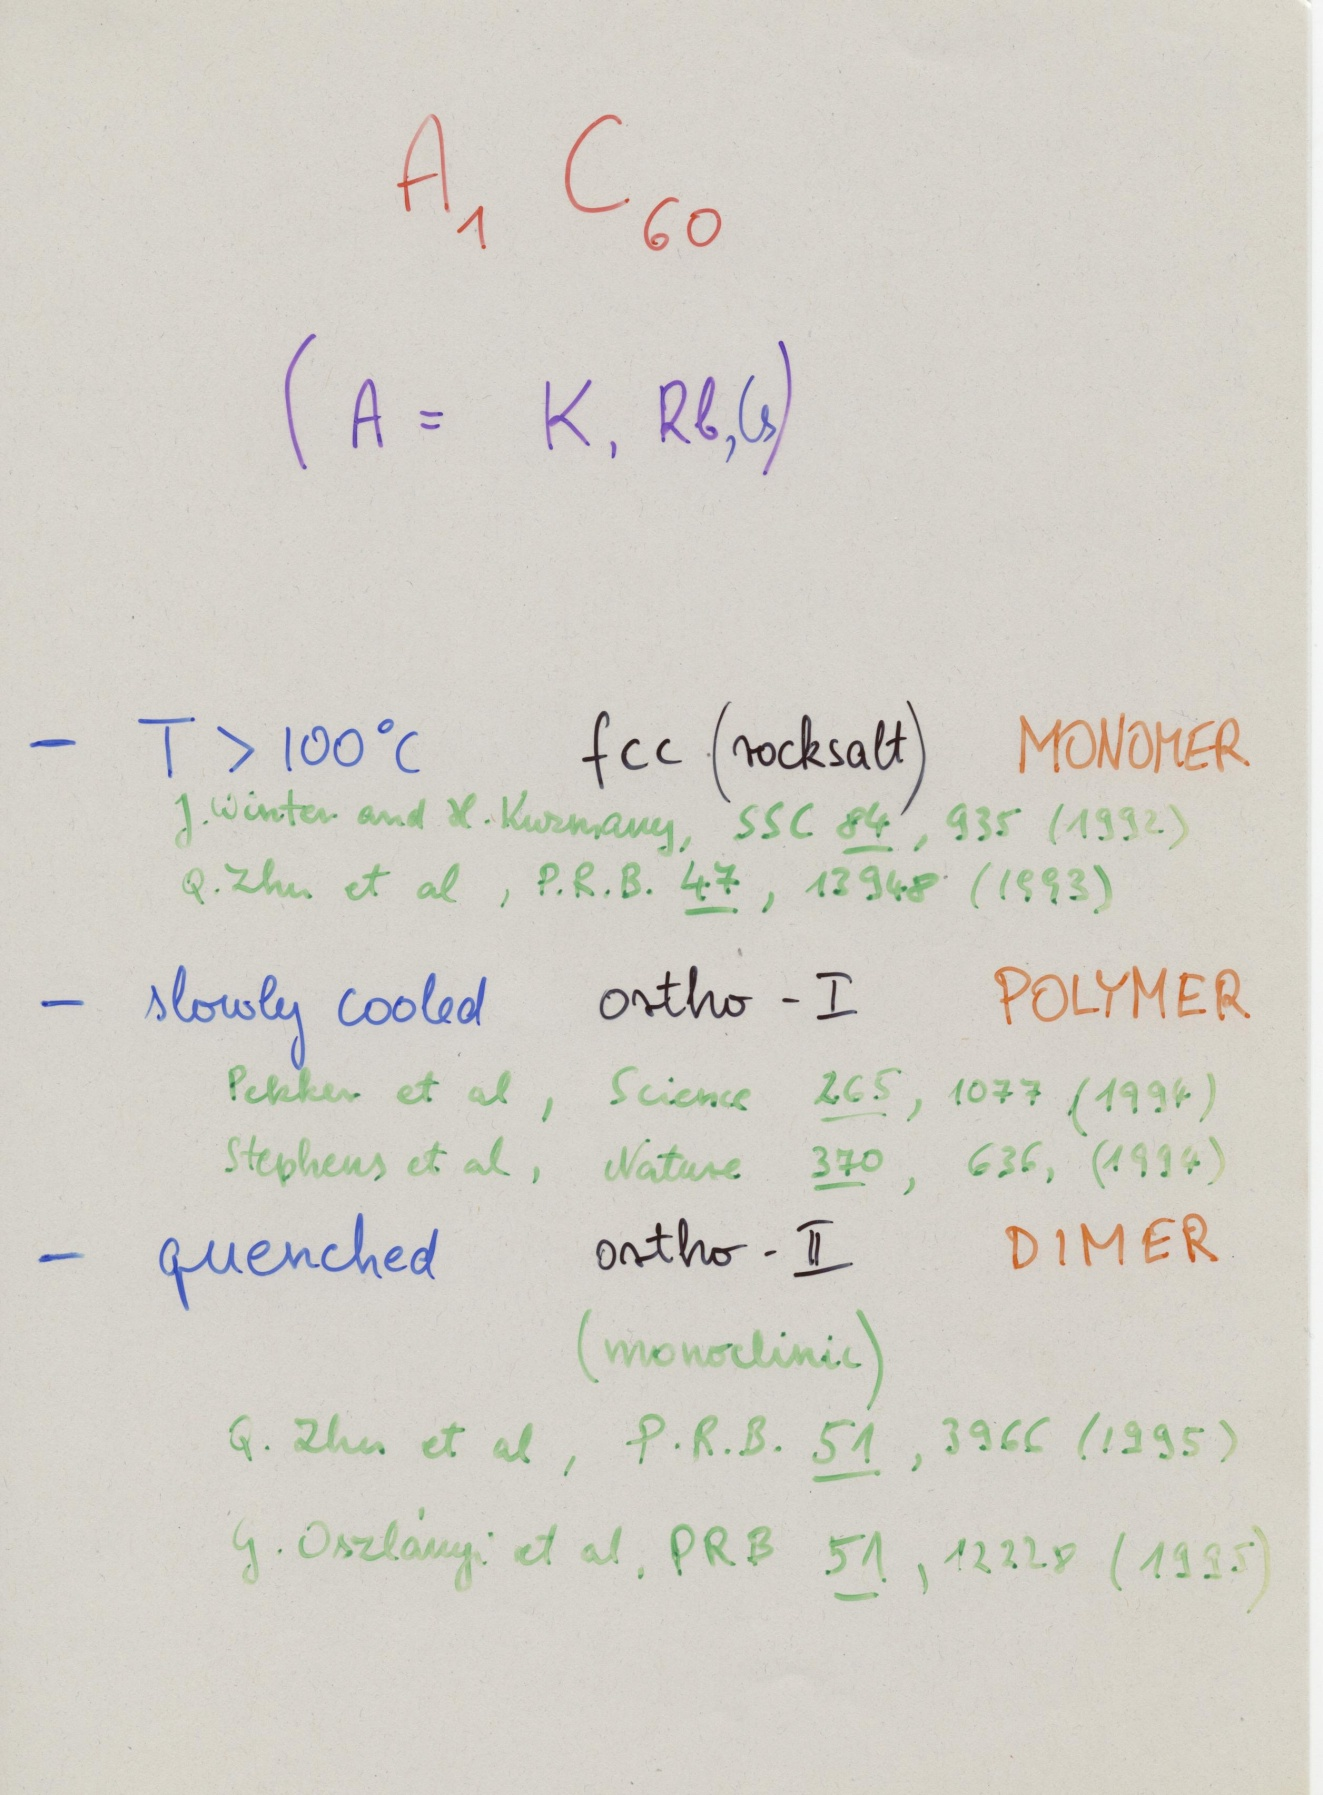 A₁ C₆₀
(A = K, Rb, Cs)
- T > 100°C fcc (rocksalt) MONOMER
J. Winter and H. Kuzmany, SSC 84, 935 (1992)
Q. Zhu et al, P.R.B. 47, 13948 (1993)
- slowly cooled ortho - I POLYMER
Pekker et al, Science 265, 1077 (1994)
Stephens et al, Nature 370, 636, (1994)
- quenched ortho - II DIMER
(monoclinic)
Q. Zhu et al, P.R.B. 51, 3966 (1995)
G. Oszlányi et al, PRB 51, 12228 (1995)